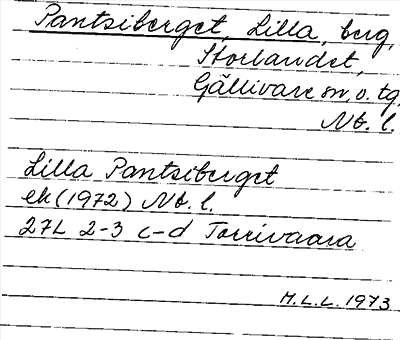 Pantsiberget, Lilla, berg,
Storlandet,
Gällivare sn, o. tg,
Nb. l.
Lilla Pantsiberget
ek (1972) Nb. l.
27L 2-3 c-d Torrivaara
M.L.L. 1973